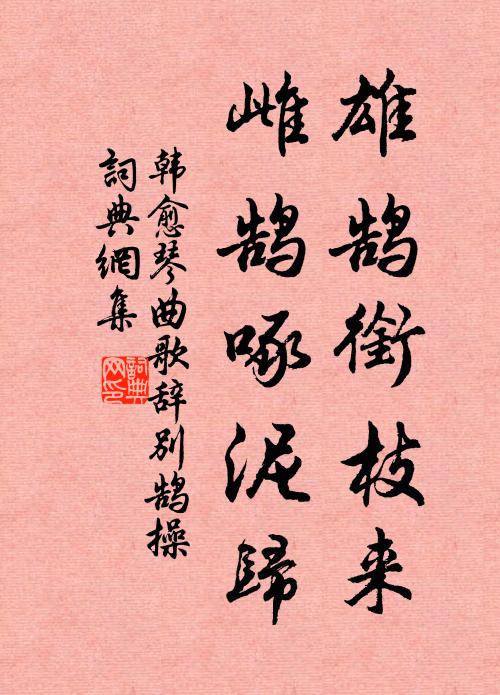 雄鹄衔枝来
雌鹄啄泥歸
韩愈琴曲歌辞别鹄操
詞典網集
詞典
网印